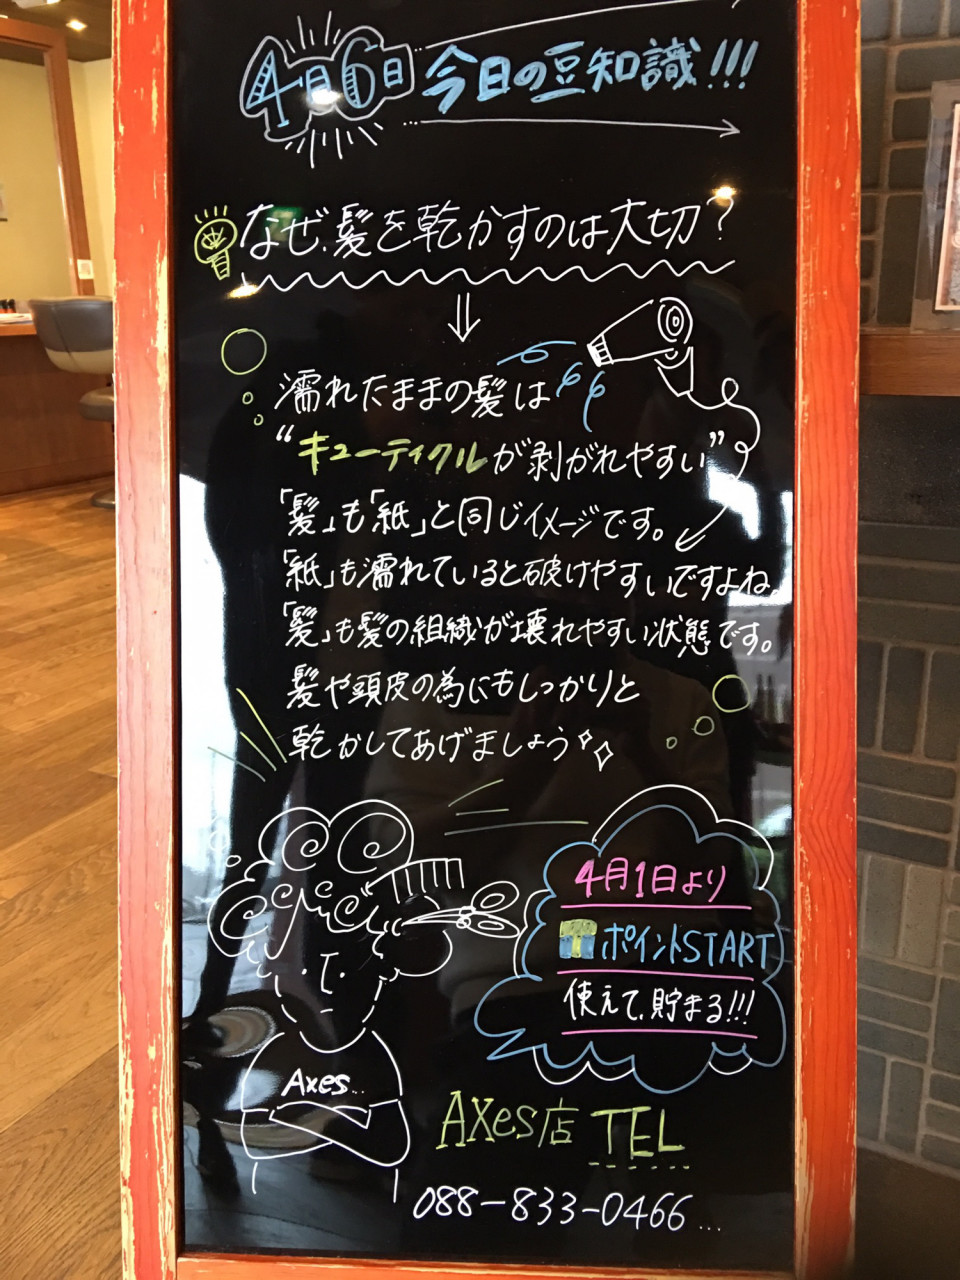 4月6日 今日の豆知識!!!
なぜ、髪を乾かすのは大切?
濡れたままの髪は
"キューティクルが剥がれやすい"
「髪」も「紙」と同じイメージです。
「紙」も濡れていると破けやすいですよね。
「髪」も髪の組織が壊れやすい状態です。
髪や頭皮の為にもしっかりと
乾かしてあげましょう
4月1日より
ポイントSTART
使えて、貯まる!!!
Axes...
AXes店 TEL
088-833-0466...